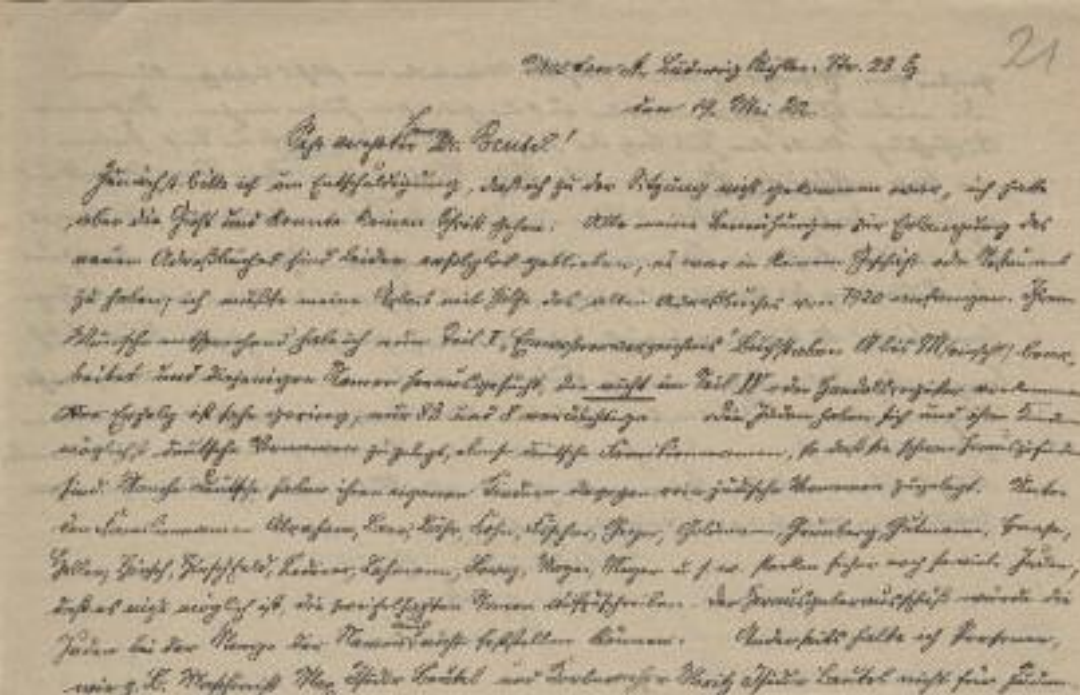 21
Dresden A. Ludwig Richter Str. 28 E
den 19. Mai 22.
Sehr verehrter Herr Dr. Beutel!
Zunächst bitte ich um Entschuldigung, daß ich zu der Sitzung nicht gekommen war, ich hatte
aber die Gicht und konnte keinen Schritt gehen. Alle meine Bemühungen zur Erlangung des
neuen Adreßbuches sind leider erfolglos geblieben, es war in keinem Geschäft oder
zu haben; ich mußte meine Arbeit mit Hilfe des alten Adreßbuches von 1920 anfangen. Ihrem
Wunsche entsprechend habe ich nun Teil I „Einwohnerverzeichnis" Buchstaben A bis M
beitet und diejenigen Namen herausgesucht, die nicht im Teil IV oder Handelsregister
Der Erfolg ist sehr gering, nur und 8 verdächtige. Die Juden haben sich und ihren
möglichst deutsche Vornamen zugelegt, ebenso deutsche Familiennamen, so daß sie schwer
sind. Manche Deutsche haben ihren eigenen Kindern dagegen rein jüdische Namen zugelegt. Unter
den Familiennamen Abraham, Cohn, Fischer, Geyer, Goldmann, Grünberg, Gutmann,
Heller, Hirsch, Hirschfeld, Lederer, Lehmann, Meyer u. s. w. stecken sicher noch soviele Juden,
daß es nicht möglich ist, die zweifelhaften Namen aufzuschreiben. Der Herausgeberausschuß würde die
Juden bei der Menge der Namen nicht feststellen können. Anderseits halte ich Personen,
wie z. B. Max Isidor Beutel und Moritz Isidor Beutel nicht für Juden